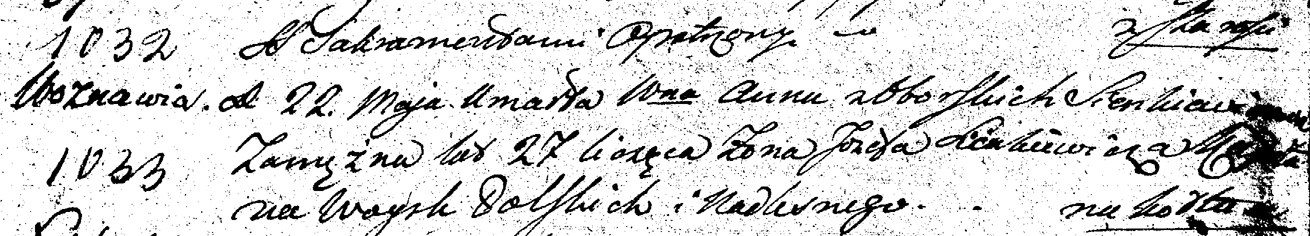 1032 SS Sakramentami Opatrzony. z Starości
Woznawia. d 22. Maja Umarła Wna Anna z Oborskich Sienkiewiczowa
1033 Zamężna lat 27 licząca Żona Józefa Sienkiewicza
na Woysk Polskich i Nadlesnego. na